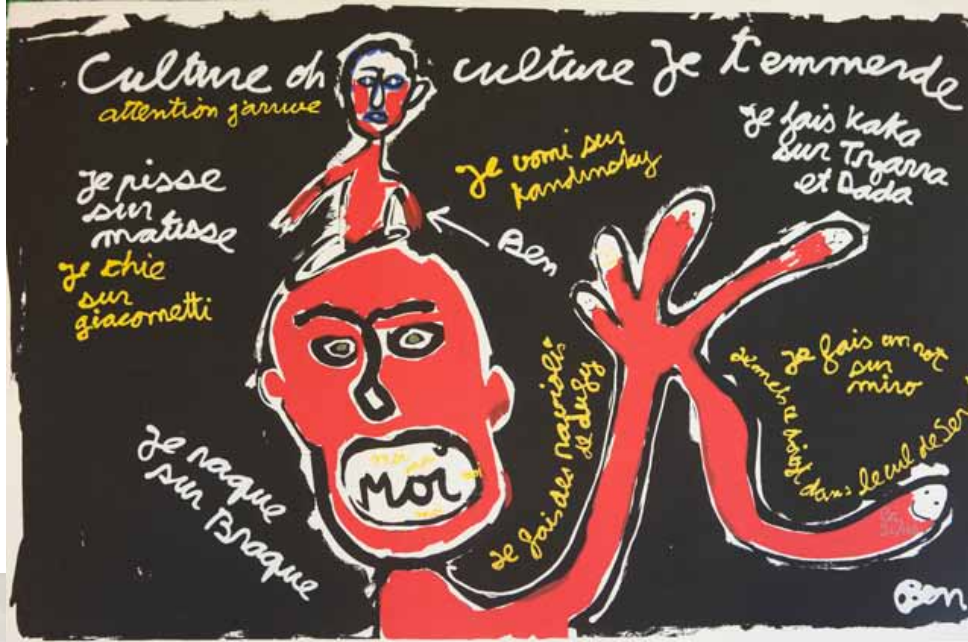 Culture oh culture Je t'emmerde
attention j'arrive
Je pisse
sur
matisse
Je chie
sur
giacometti
Je vomi sur
Kandinsky
Ben
Je fais Kaka
sur Tzarra
et Dada
Je fais un rot
sur
miro
Je mets ce doigt dans le cul de Ser
Je fais des raviolis de dufy
Je raque
sur Braque
moi moi
MOi
moi
moi
Ben